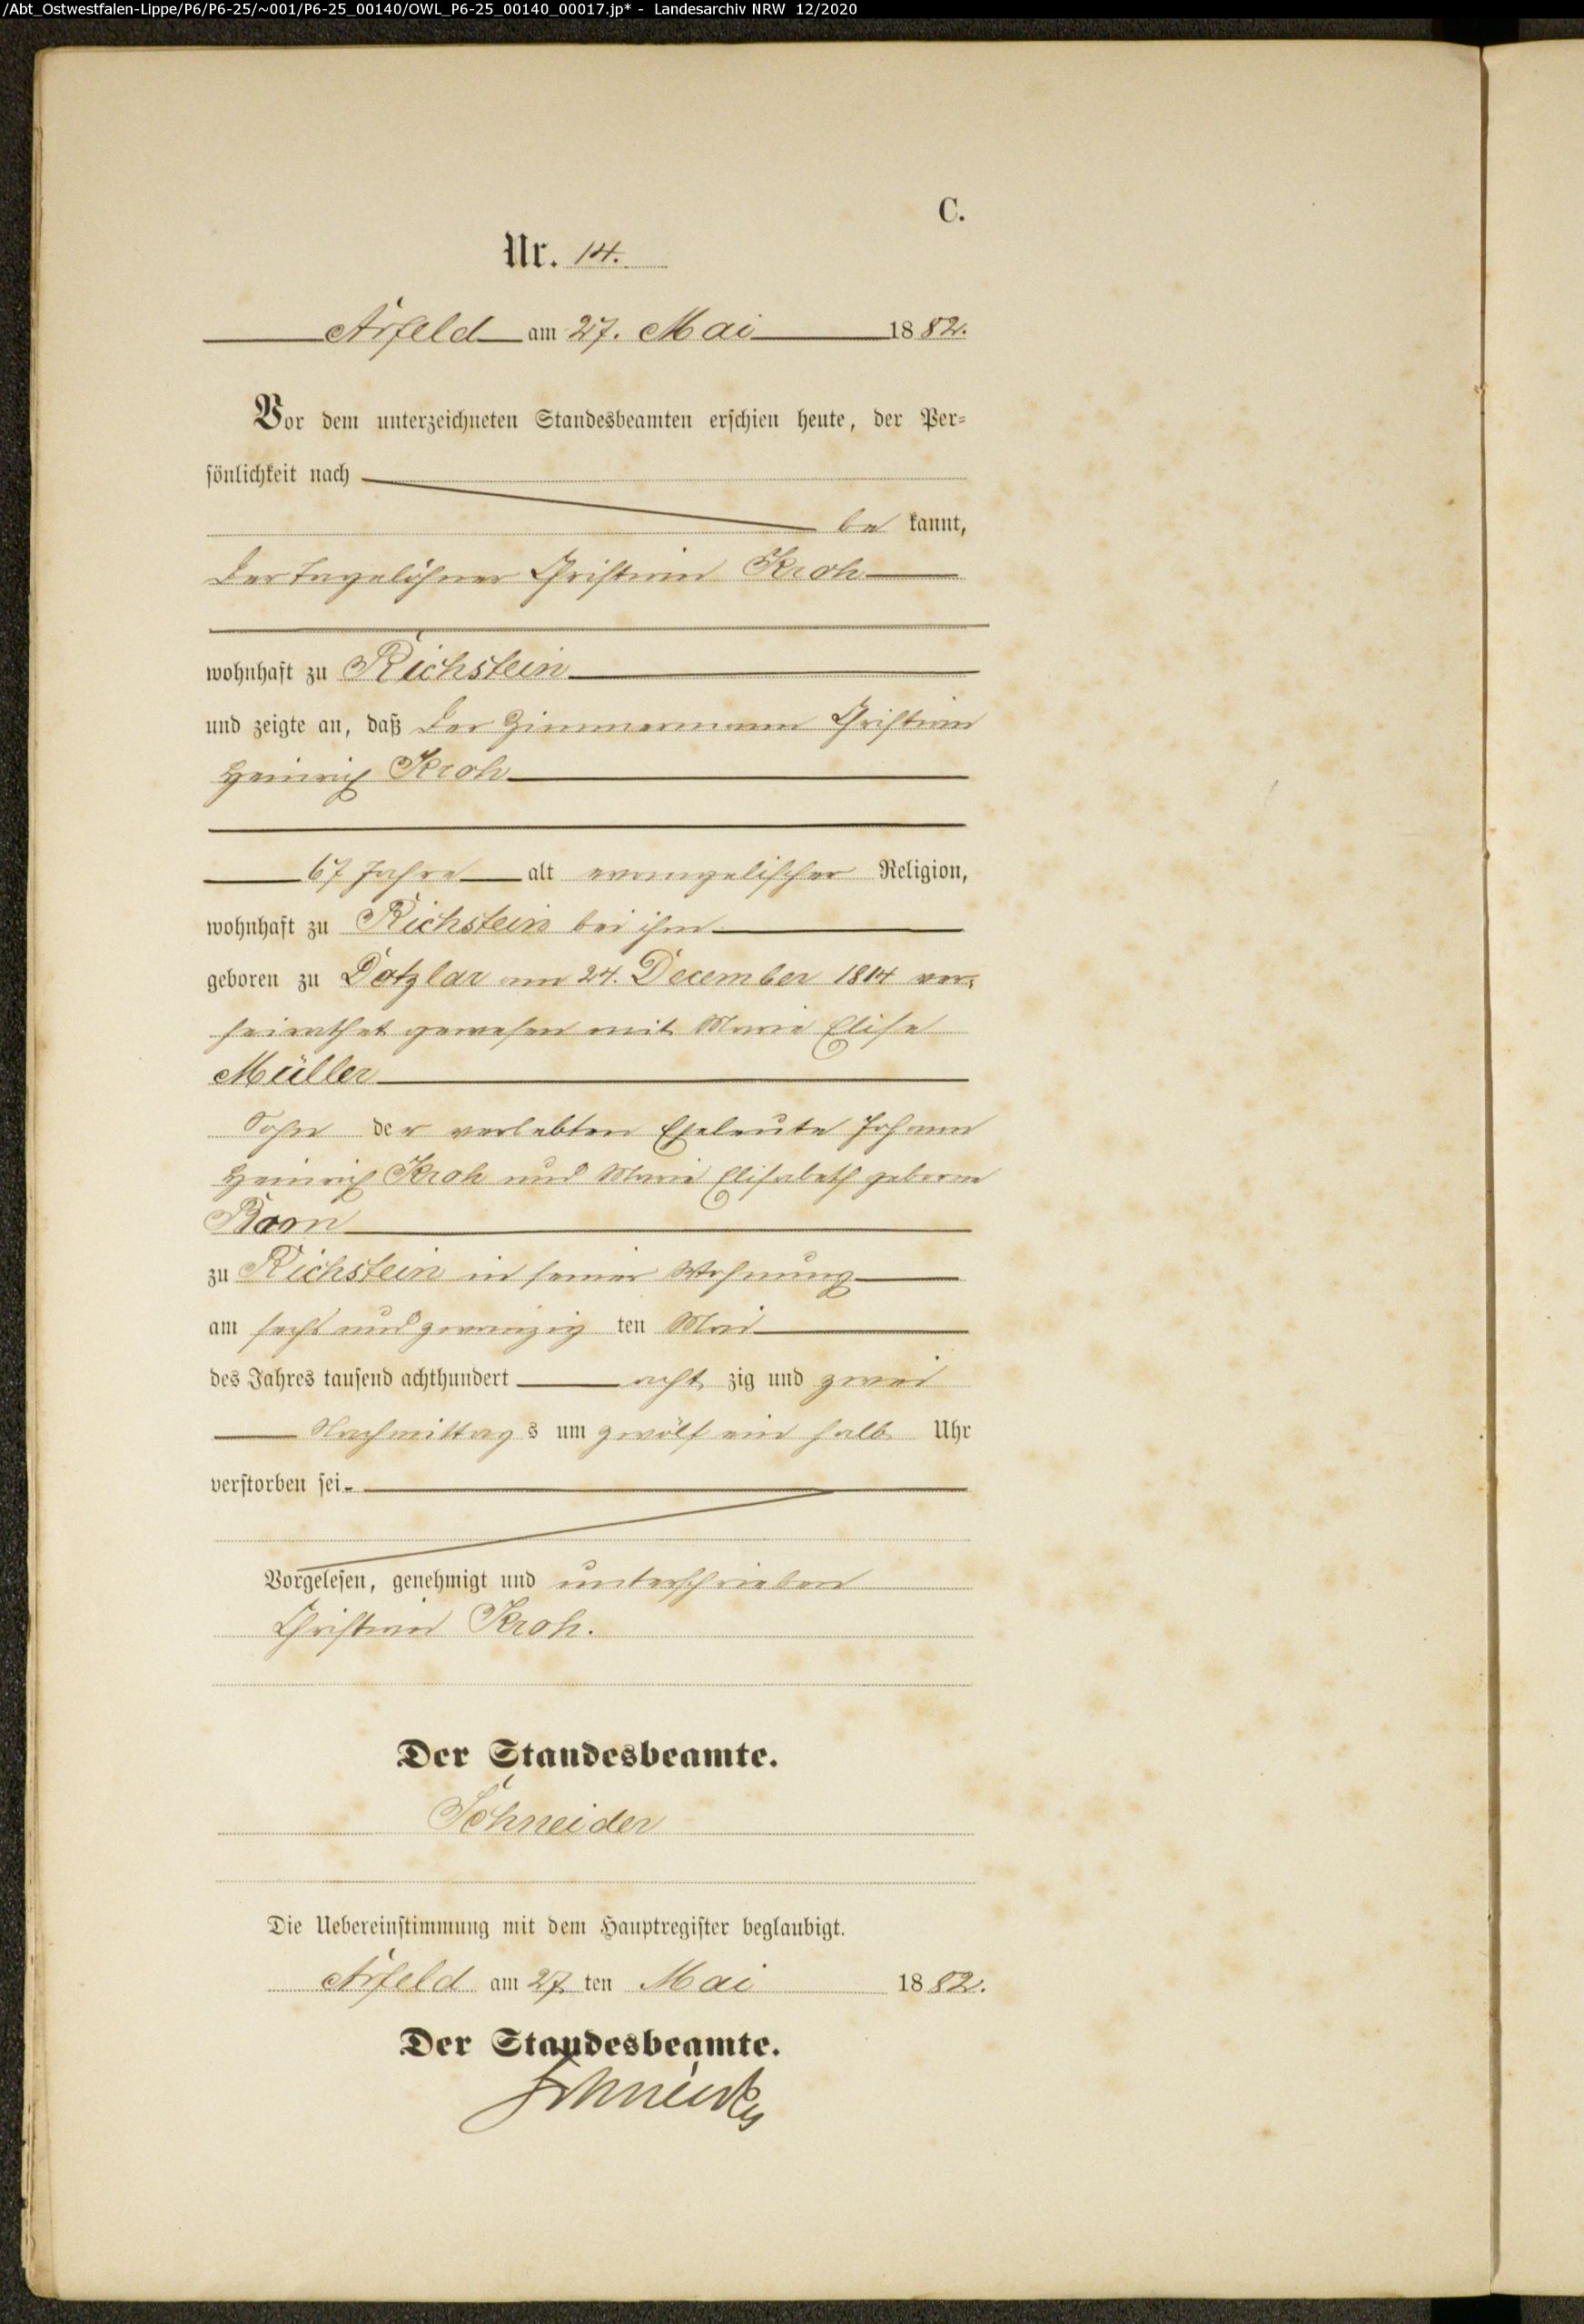 /Abt_Ostwestfalen-Lippe/P6/P6-25/~001/P6-25_00140/OWL_P6-25_00140_00017.jp* - Landesarchiv NRW 12/2020
C.
Nr. 14.
Arfeld am 27. Mai 1882.
Vor dem unterzeichneten Standesbeamten erschien heute, der Per-
sönlichkeit nach
be kannt,
der Tagelöhner Christian Kroh
wohnhaft zu Richstein
und zeigte an, daß der Zimmermann Christian
Heinrich Kroh
67 Jahre alt evangelischer Religion,
wohnhaft zu Richstein bei ihm
geboren zu Dotzlar am 24. December 1814 ver-
heirathet gewesen mit Marie Elise
Müller
Sohn der verlebten Eheleute Johann
Heinrich Kroh und Marie Elisabeth geborne
Born
zu Richstein in seiner Wohnung
am sechs und zwanzig ten Mai
des Jahres tausend achthundert acht zig und zwei
Nachmittag s um zwölf ein halb Uhr
verstorben sei.
Vorgelesen, genehmigt und unterschrieben
Christian Kroh.
Der Standesbeamte.
Schneider
Die Uebereinstimmung mit dem Hauptregister beglaubigt.
Arfeld am 27 ten Mai 1882.
Der Standesbeamte.
Schneider